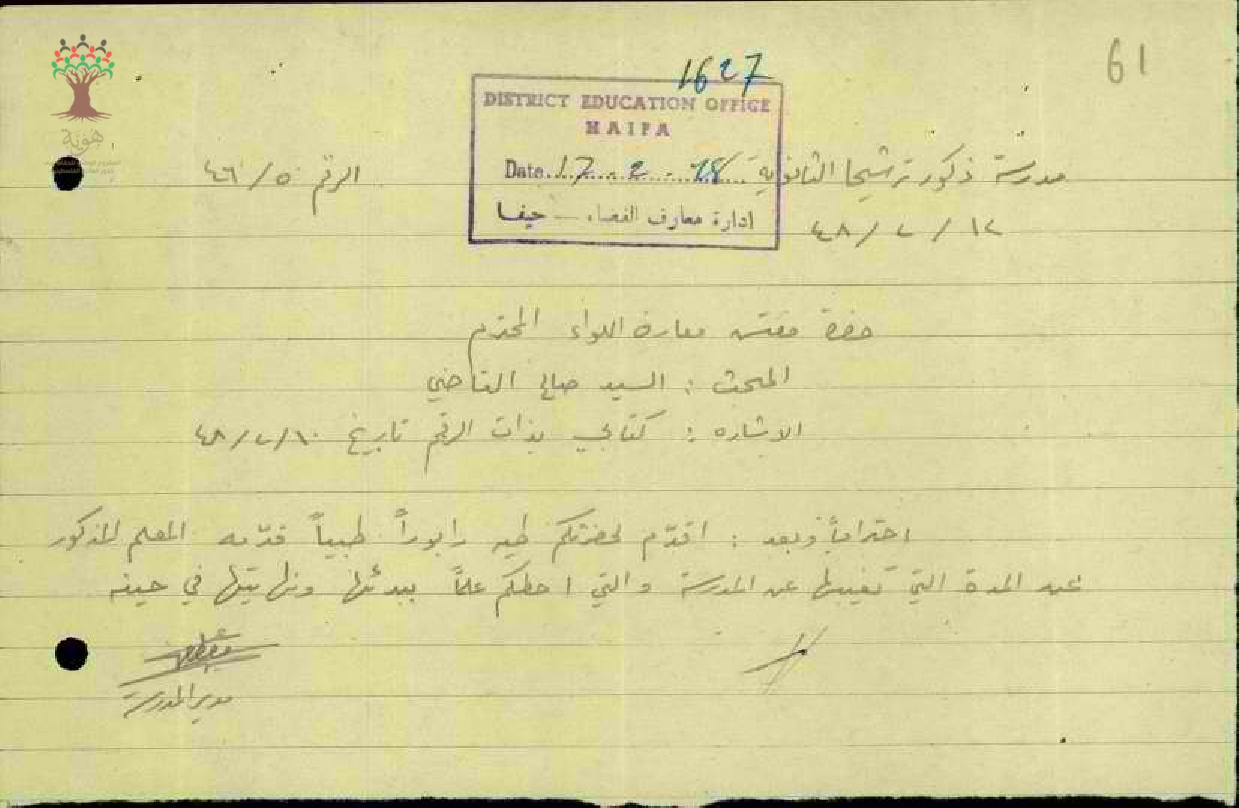 61
1627
DISTRICT EDUCATION OFFICE
HAIFA
Date 17 - 2 - 48
ادارة معارف القضاء — حيفا
هوية
مدرسة ذكور ترشيحا الثانوية
الرقم ٥ / ٤٦
١٢ / ٢ / ٤٨
حضرة مفتش معارف اللواء المحترم
المبحث : السيد صالح القاضي
الاشاره : كتابي بذات الرقم تاريخ ١٠ / ٢ / ٤٨
احتراماً وبعد : اقدّم لحضرتكم طيه رابوراً طبياً قدّمه المعلم المذكور
عن المدة التي تغيبها عن المدرسة والتي احطكم علماً ببدئها ونهايتها في حينه
مدير المدرسة